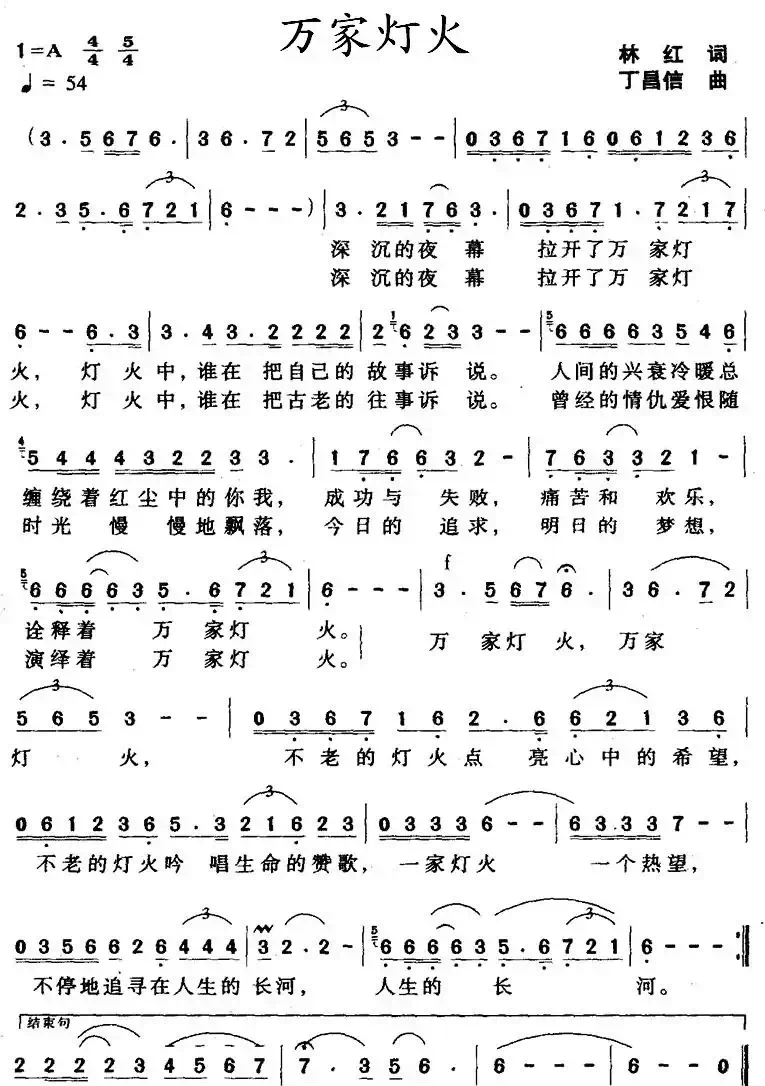 万家灯火
1=A 4/4 5/4
林红 词
♩= 54
丁昌信 曲
(3·5676· | 36·72 | 5653-- | 03671606123 6 |
2·35·6721 | 6---) | 3·21763· | 03671·7217 |
深沉的夜幕 拉开了万家灯
深沉的夜幕 拉开了万家灯
6--6·3 | 3·43·2222 | 26233-- | 66663546 |
火, 灯火中,谁在 把自己的故事诉说。 人间的兴衰冷暖总
火, 灯火中,谁在 把古老的往事诉说。 曾经的情仇爱恨随
54443223 3· | 1766632- | 7633 21- |
缠绕着红尘中的你我, 成功与 失败, 痛苦和 欢乐,
时光 慢 慢地飘落, 今日的 追求, 明日的 梦想,
66663 5·6721 | 6--- | f 3·5676· | 36·72 |
诠释着 万家灯 火。 万家灯火, 万家
演绎着 万家灯 火。
5653-- | 0367162·6 62136 |
灯 火, 不老的灯火点 亮心中的希望,
0612365·3 21623 | 03336-- | 63337-- |
不老的灯火吟 唱生命的赞歌, 一家灯火 一个热望,
03566626444 | 32·2- | 66663 5·6721 | 6--- :|
不停地追寻在人生的 长河, 人生的 长 河。
结束句
22223 4567 | 7·356· | 6--- | 6--0 |